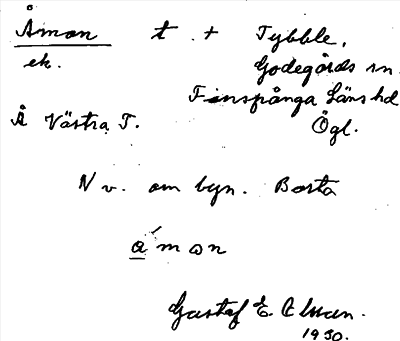 Åmon t. + Tybble,
ek. Godegårds sn
Finspånga läns hd
Å Västra T. Ögl.
N v. om byn. Borta
a ́ m ɷ n
Gustaf E. Olsson.
1930.